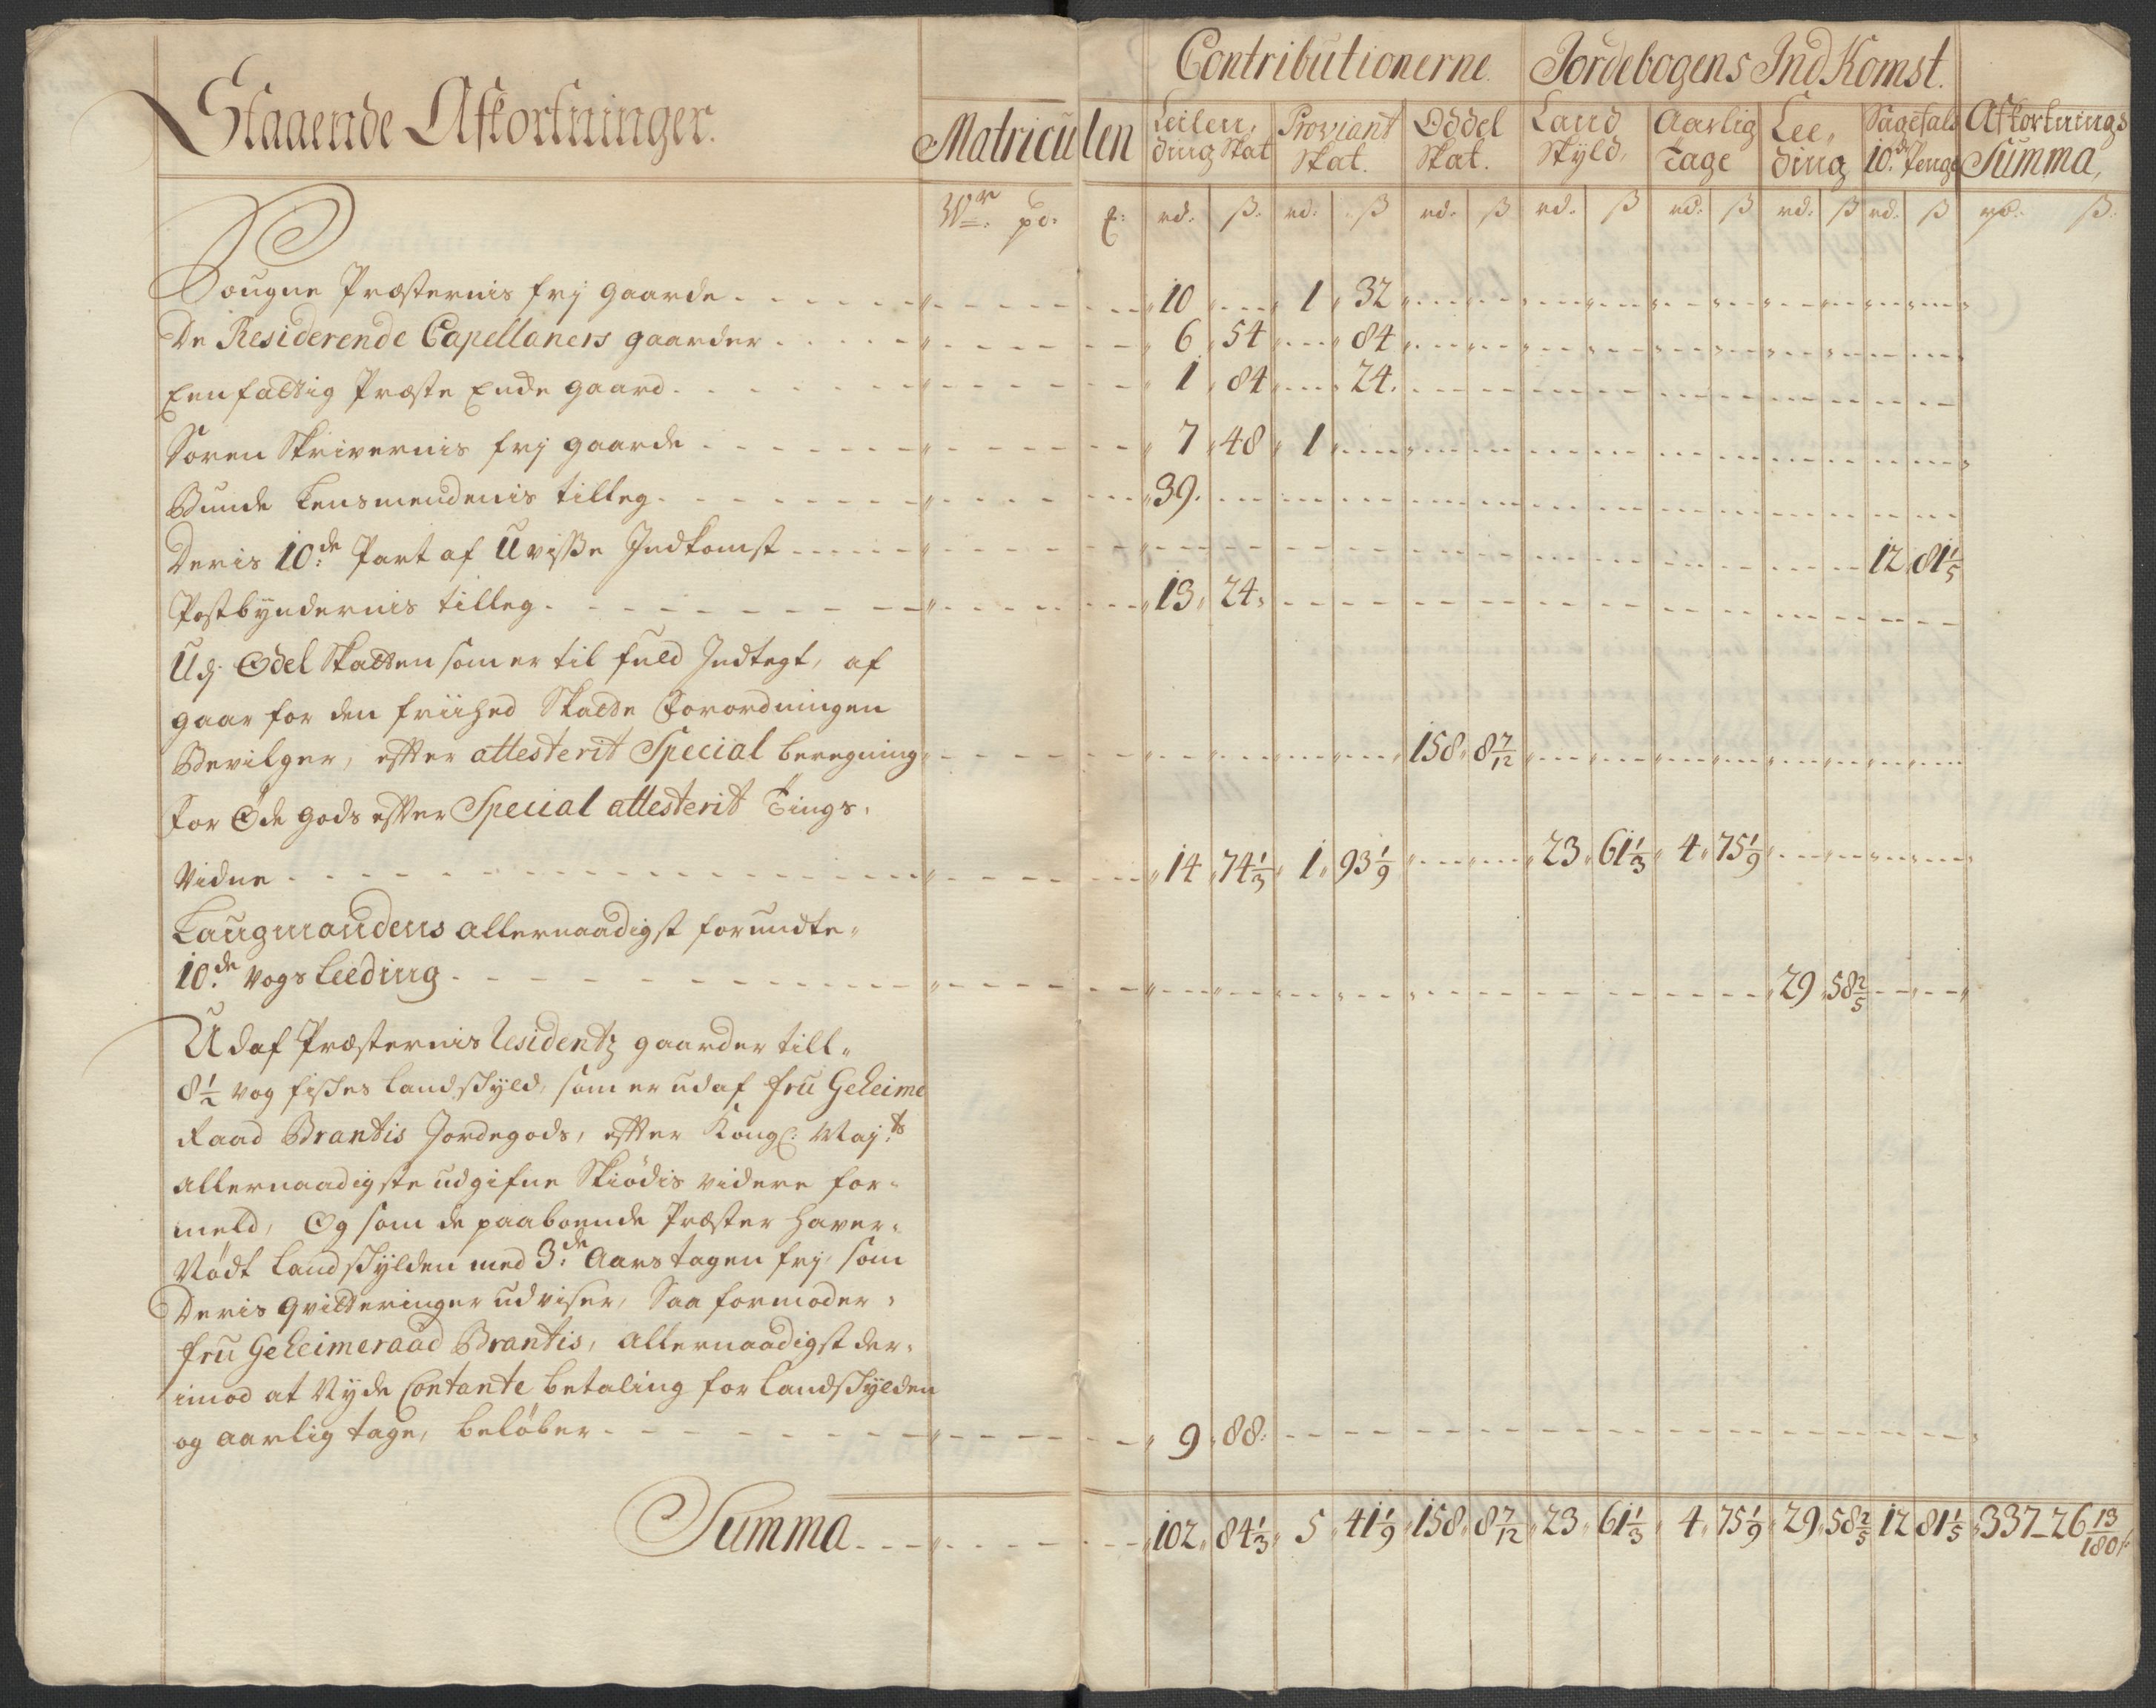 Contributionerne. Jordebogens IndKomst.
Staaende Afkortninger.
Matriculen Leilending Skat Proviant Skat. Oddel Skat. Land Skyld, Aarlig Tage Leeding Sagefald 10de Penge Afkortnings Summa,
Wr: pd: f: rd. ß. rd: ß rd. ß rd. ß rd: ß rd. ß rd. ß rd. ß.
Sougne Præsternis frj gaarde - - - 10 - - 1 32
De Residerende Capellaners gaarder - - - 6 54 - - 84
Een fattig Præste Encke gaard - - - 1 84 - - 24
Soren Skrivernis frj gaarde - - - 7 48 1
Bunde Lensmendenis tilleg - - - 39
Deris 10de Part af Uvisse Indkomst - - - 12 81 1/5
Postbyndernis tilleg - - - 13 24
Udj Odel Skatten som er til fuld Indtegt, af
gaar for den friihed Skatte Forordningen
Bevilger, effter attesterit Special beregning - - - 158 8 7/12
For Øde gods effter Special attesterit Tings
Vidne - - - 14 74 1/3 1 93 1/9 - - 23 61 1/3 4 75 1/9
Laugmandens allernaadigst forundte
10de Vogs Leeding - - - 29 58 2/5
Udaf Præsternis Residentz gaarder till
8 1/2 vog fiskes Landskyld, som er udaf fru Geheime
Raad Brantis Jordegods, effter Kongl: Mayts
allernaadigste udgifne Skiødis videre for=
meld, Og som de paaboende Præster haver
Nødt Landskylden med 3de Aars tagen frj, som
Deris qvitteringer udviser, Saa formoder
fru Geheimeraad Brantis, allernaadigst der
imod at Nyde Contante betaling for Landskylden
og aarlig tage, beløber - - - 9 88
Summa - - - 102 84 1/3 5 41 1/9 158 8 7/12 23 61 1/3 4 75 1/9 29 58 2/5 12 81 1/5 337 - 26 13/180